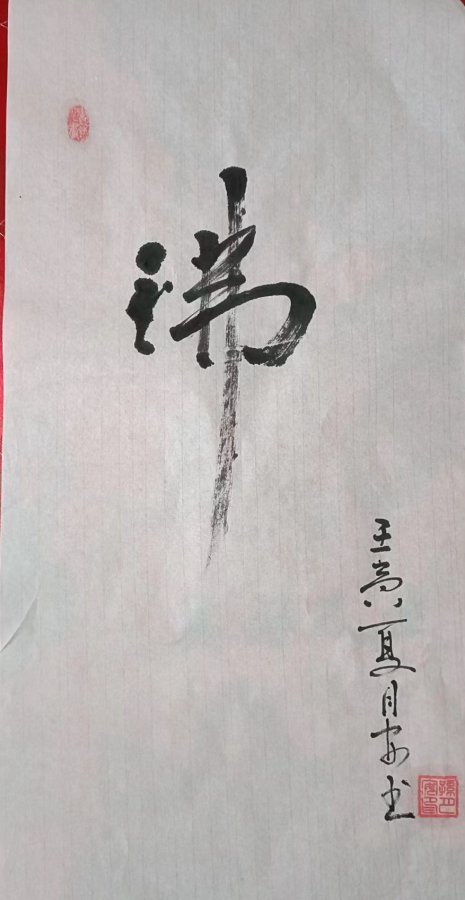 佛
壬寅夏月安书